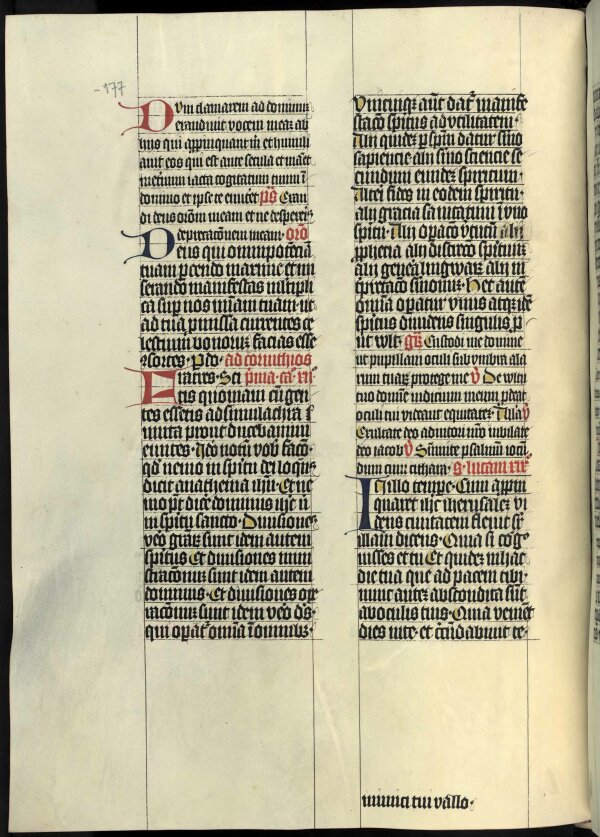 177
Dum clamarem ad dominum
exaudivit vocem meam ab
hiis qui appropinquant m̄ et humili
avit eos qui est ante secula et manet
in eternum iacta cogitatum tuum ī
domino et ipse te enutriet p̄s Exau
di deus oroem meam et ne despexeris
Deprecacōnem meam · orō
Deus qui omnipotēciā
tuam parcendo maxime et mi
serando manifestas multipli
ca super nos mīam tuam · ut
ad tua promissa currentes ce
lestium bonorum facias esse
consortes · p do · ad corinthios
Fratres · Sci prima · ca° xii
tis quoniam cū gen
tes essetis ad simulachra
muta prout ducebamini
euntes · Ideo notū vob facio ·
qd nemo in spiritu dei loquens
dicit anathema ihu · Et ne
mo pot dicere dominus ihc n̄
in spiritu sancto · Divisiones
vero graciarum sunt idem autem
spiritus Et divisiones mini
stracōnum sunt idem autem
dominus · Et divisiones ope
racōnum sunt idem vero ds ·
qui operat omnia ī omnibus ·
Unicuique autē datur manife
stacō spiritus ad utilitatem ·
Alii quidem per spm datur sermo
sapiencie alii sermo sciencie se
cundum eundem spiritum ·
Alteri fides in eodem spiritu ·
alii gracia sanitatum ī uno
spiritu · Alii opacō virtutū alii
prophetia alii discrecō spirituum
alii genera lingwarum alii in
terpretacō sermonum · Hec autem
omnia operatur unus atque idem
spiritus dividens singulis p
ut vult · gr̄ Custodi me domine
ut pupillam oculi sub umbra ala
rum tuarum protege me V De vultu
tuo domine iudicium meum prodeat
oculi tui videant equitatem · Alla V
Exultate deo adiutori nr̄o iubilate
deo iacob V Sumite psalmum iocun
dum cum cithara · s · lucam xix
In illo tempore · Cum appropin
quaret ihc iherusalem vi
dens civitatem flevit sup
illam dicens · Quia si cog°
visses et tu Et quidem in hac
die tua que ad pacem tibi ·
nunc autem abscondita sunt
ab oculis tuis · Quia venient
dies in te · et circūdabunt te
inimici tui vallo ·